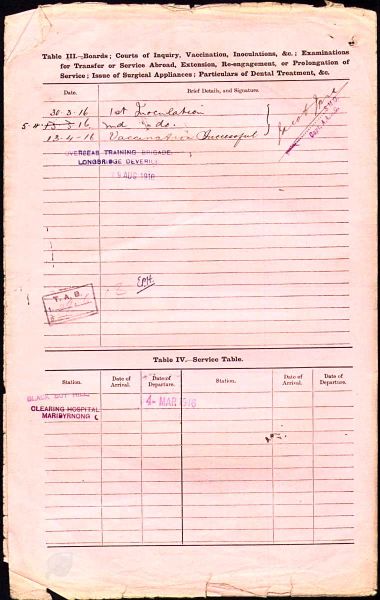 Table III.—Boards; Courts of Inquiry, Vaccination, Inoculations, &c.; Examinations
for Transfer or Service Abroad, Extension, Re-engagement, or Prolongation of
Service; Issue of Surgical Appliances; Particulars of Dental Treatment, &c.
Date. Brief Details, and Signature.
30-3-16 1st Inoculation
2nd do.
13-4-16 Vaccination Successful
OVERSEAS TRAINING BRIGADE
LONGBRIDGE DEVERILL
AUG 1916
T. A. B.
Table IV.—Service Table.
Station. Date of Arrival. Date of Departure. Station. Date of Arrival. Date of Departure.
4- MAR 1916
CLEARING HOSPITAL
MARIBYRNONG